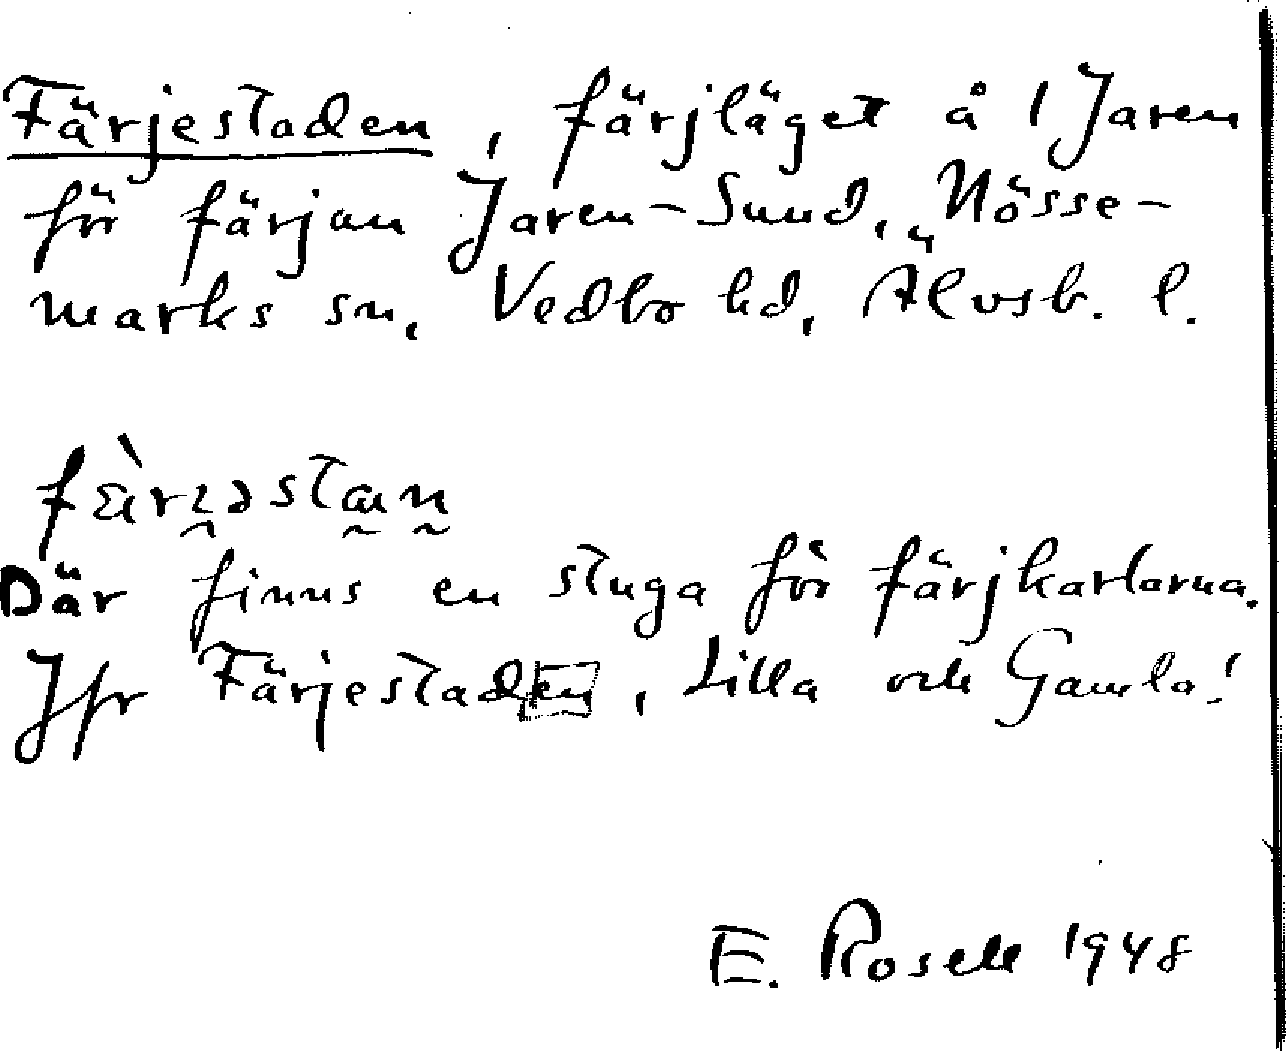 Färjestaden, färjläget å 1 Jaren
för färjan Jaren-Sund, Nösse-
marks sn, Vedbo hd, Älvsb. l.
Där finns en stuga för färjkarlarna.
Jfr Färjestaden, Lilla och Gamla!
E. Rosell 1948